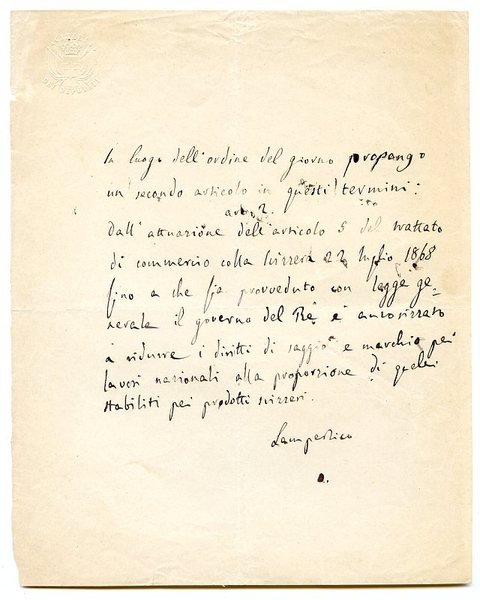 In luogo dell'ordine del giorno propongo
un secondo articolo in questi termini:
art. 2.
Dall'attuazione dell'articolo 5 del trattato
di commercio colla Svizzera 22 luglio 1868
fino a che sia provveduto con legge ge-
nerale il governo del Re è autorizzato
a ridurre i diritti di saggio e marchio pei
lavori nazionali alla proporzione di quelli
stabiliti pei prodotti svizzeri.
Lampertico